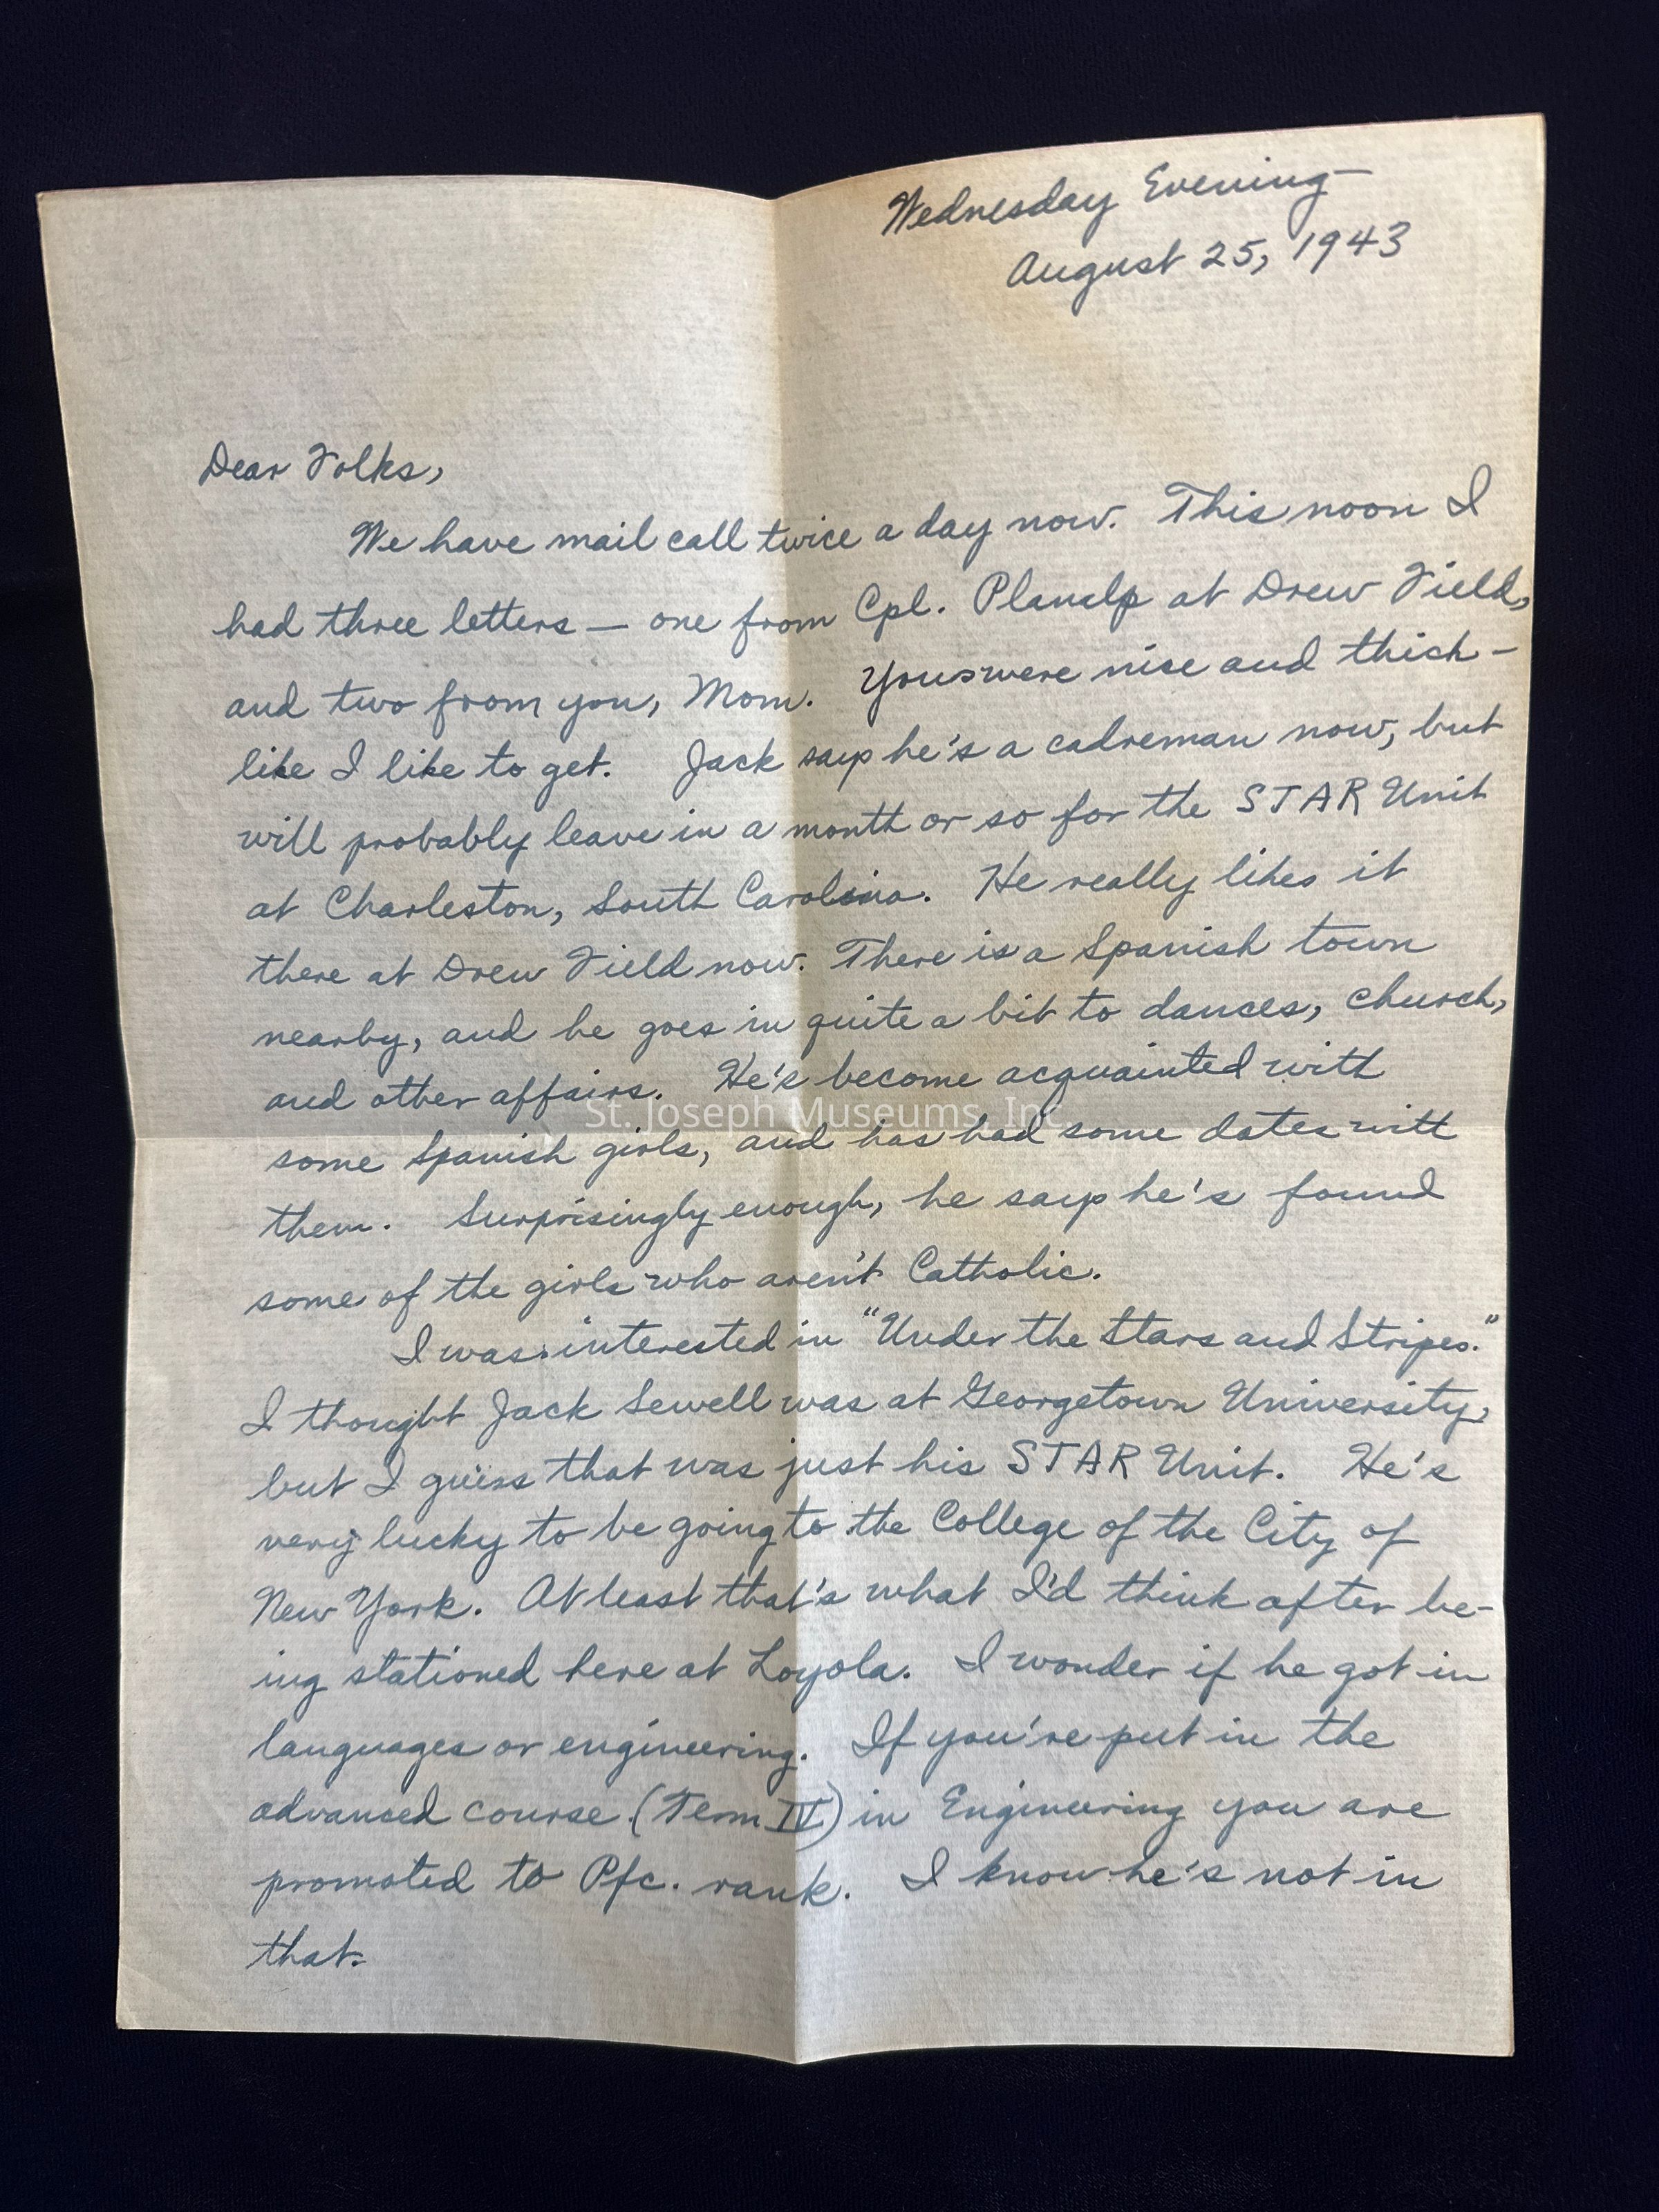 Wednesday Evening—
August 25, 1943
Dear Folks,
We have mail call twice a day now. This noon I
had three letters — one from Cpl. Planalp at Drew Field,
and two from you, Mom. Yours were nice and thick —
like I like to get. Jack says he's a cadreman now, but
will probably leave in a month or so for the STAR Unit
at Charleston, South Carolina. He really likes it
there at Drew Field now. There is a Spanish town
nearby, and he goes in quite a bit to dances, church,
and other affairs. He's become acquainted with
St. Joseph Museums, Inc
some Spanish girls, and has had some dates with
them. Surprisingly enough, he says he's found
some of the girls who aren't Catholic.
I was interested in "Under the Stars and Stripes."
I thought Jack Sewell was at Georgetown University,
but I guess that was just his STAR Unit. He's
very lucky to be going to the College of the City of
New York. At least that's what I'd think after be-
ing stationed here at Loyola. I wonder if he got in
languages or engineering. If you're put in the
advanced course (Term IV) in Engineering you are
promoted to Pfc. rank. I know he's not in
that.